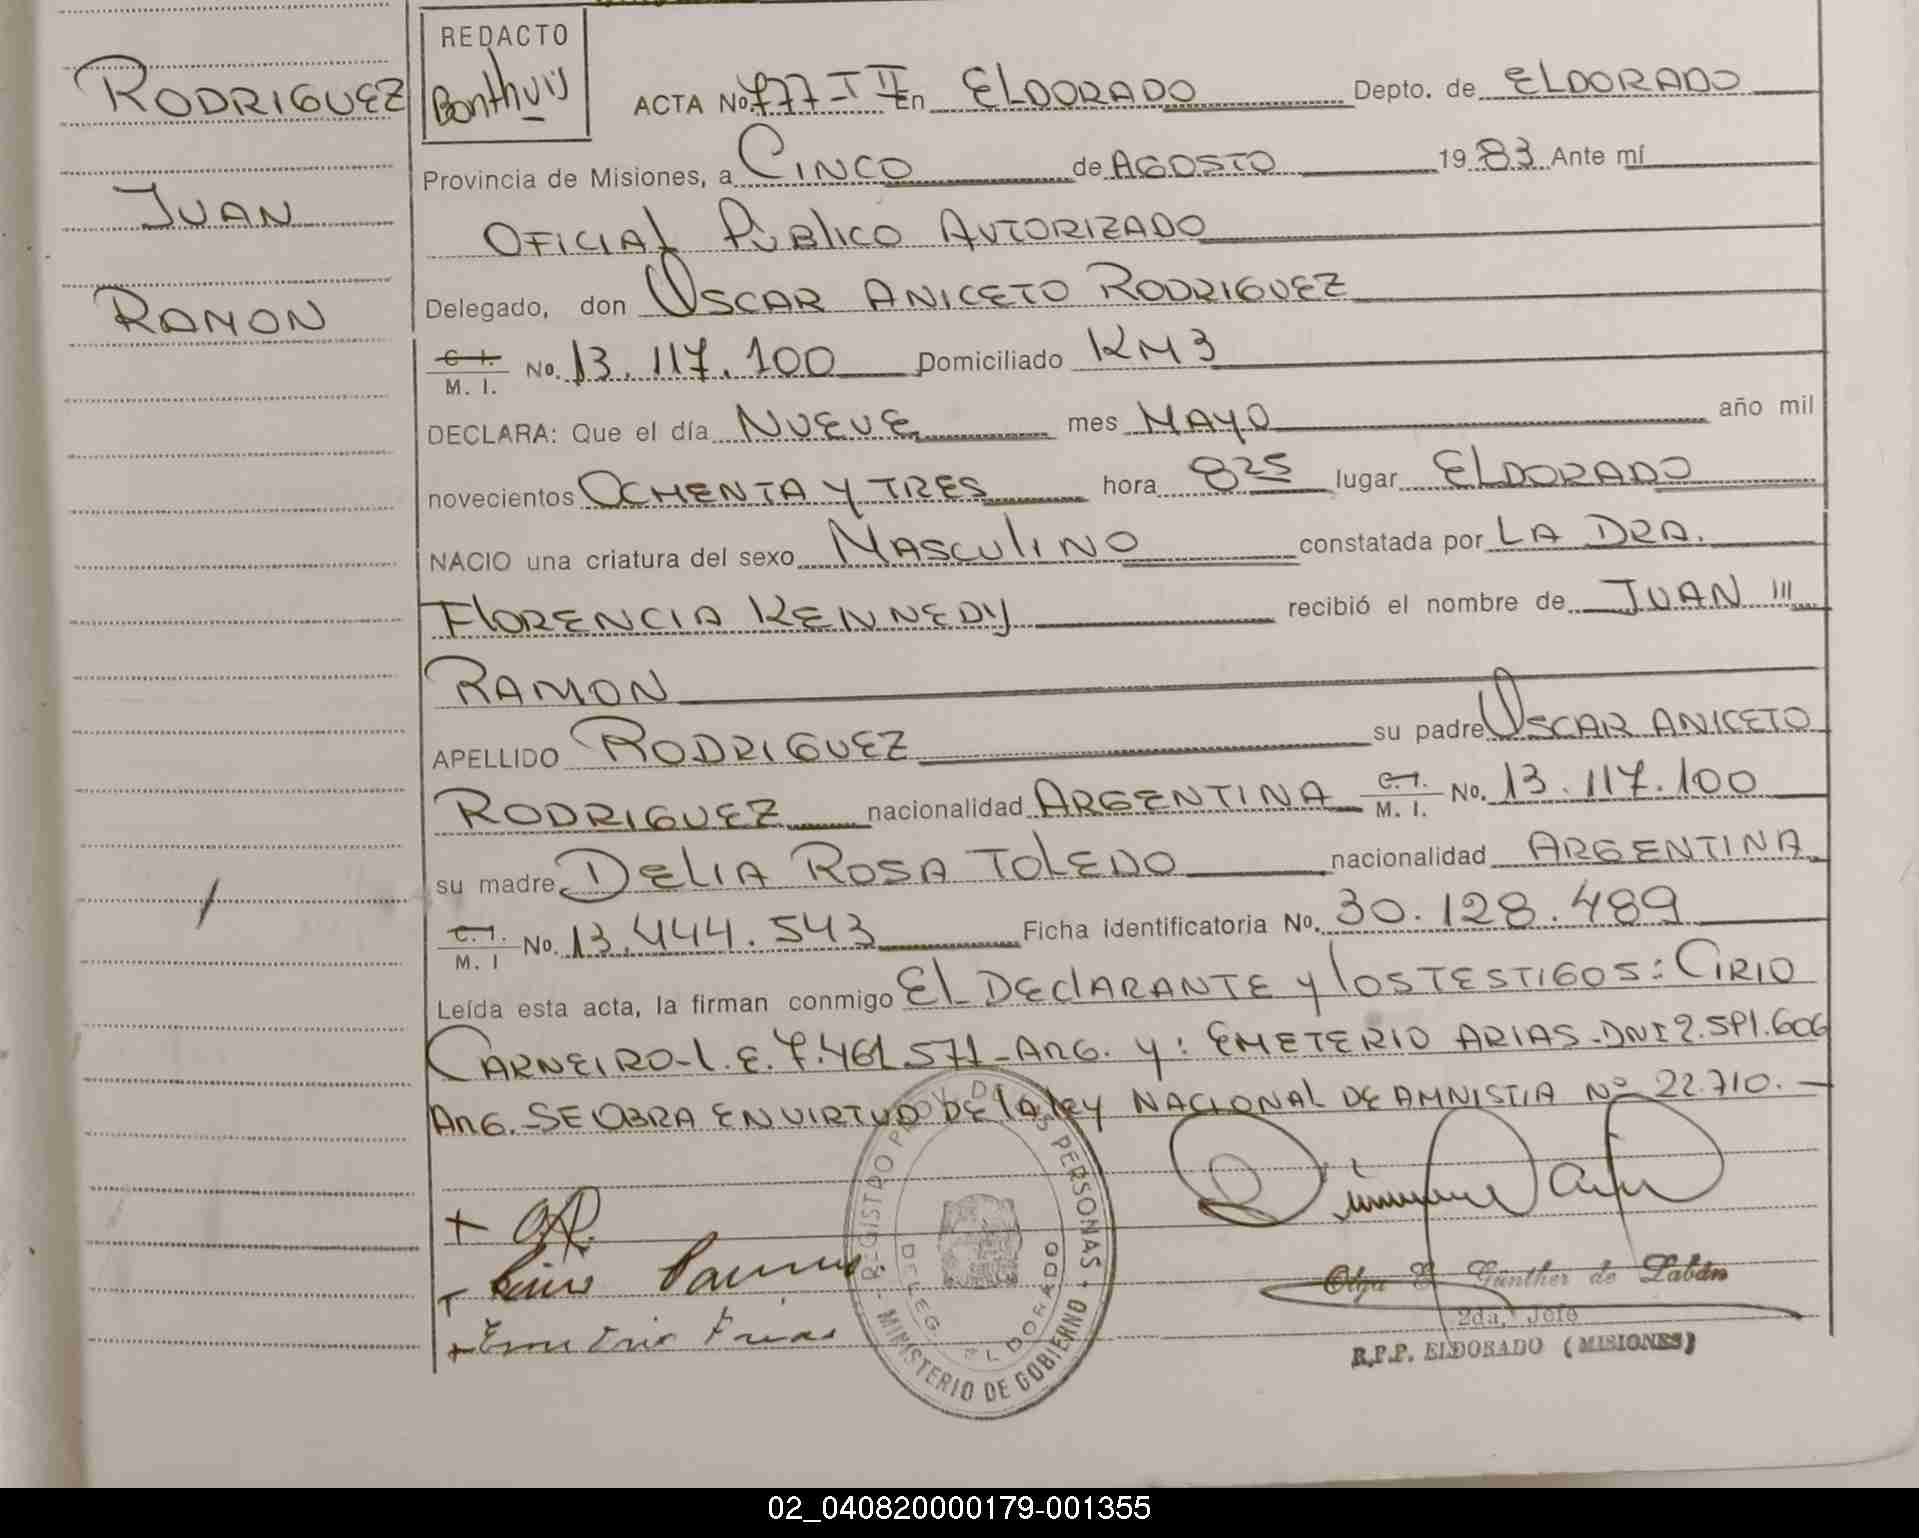 RODRIGUEZ
JUAN
RAMON
REDACTO
ACTA No 777-T II En ELDORADO Depto. de ELDORADO
Provincia de Misiones, a CINCO de AGOSTO 1983 Ante mí
OFICIAL PUBLICO AUTORIZADO
Delegado, don OSCAR ANICETO RODRIGUEZ
C. I.
M. I. No. 13.117.100 Domiciliado KM3
DECLARA: Que el día NUEVE mes MAYO año mil
novecientos OCHENTA Y TRES hora 8 25 lugar ELDORADO
NACIO una criatura del sexo MASCULINO constatada por LA DRA.
FLORENCIA KENNEDY recibió el nombre de JUAN
RAMON
APELLIDO RODRIGUEZ su padre OSCAR ANICETO
RODRIGUEZ nacionalidad ARGENTINA C.I. M. I. No. 13.117.100
su madre DELIA ROSA TOLEDO nacionalidad ARGENTINA
C.I.
M. I No. 13.444.543 Ficha identificatoria No. 30.128.489
Leída esta acta, la firman conmigo EL DECLARANTE Y LOS TESTIGOS: CIRIO
CARNEIRO-L.E. 7.461.571-ARG. Y: EMETERIO ARIAS-DNI 2.591.606
ARG.-SE OBRA EN VIRTUD DE LA LEY NACIONAL DE AMNISTIA Nº 22.710.-
REGISTRO PROV. DE LAS PERSONAS
MINISTERIO DE GOBIERNO
DELEG. ELDORADO
Olga E. Günther de Labán
2da. Jefe
R.P.P. ELDORADO (MISIONES)
02_040820000179-001355